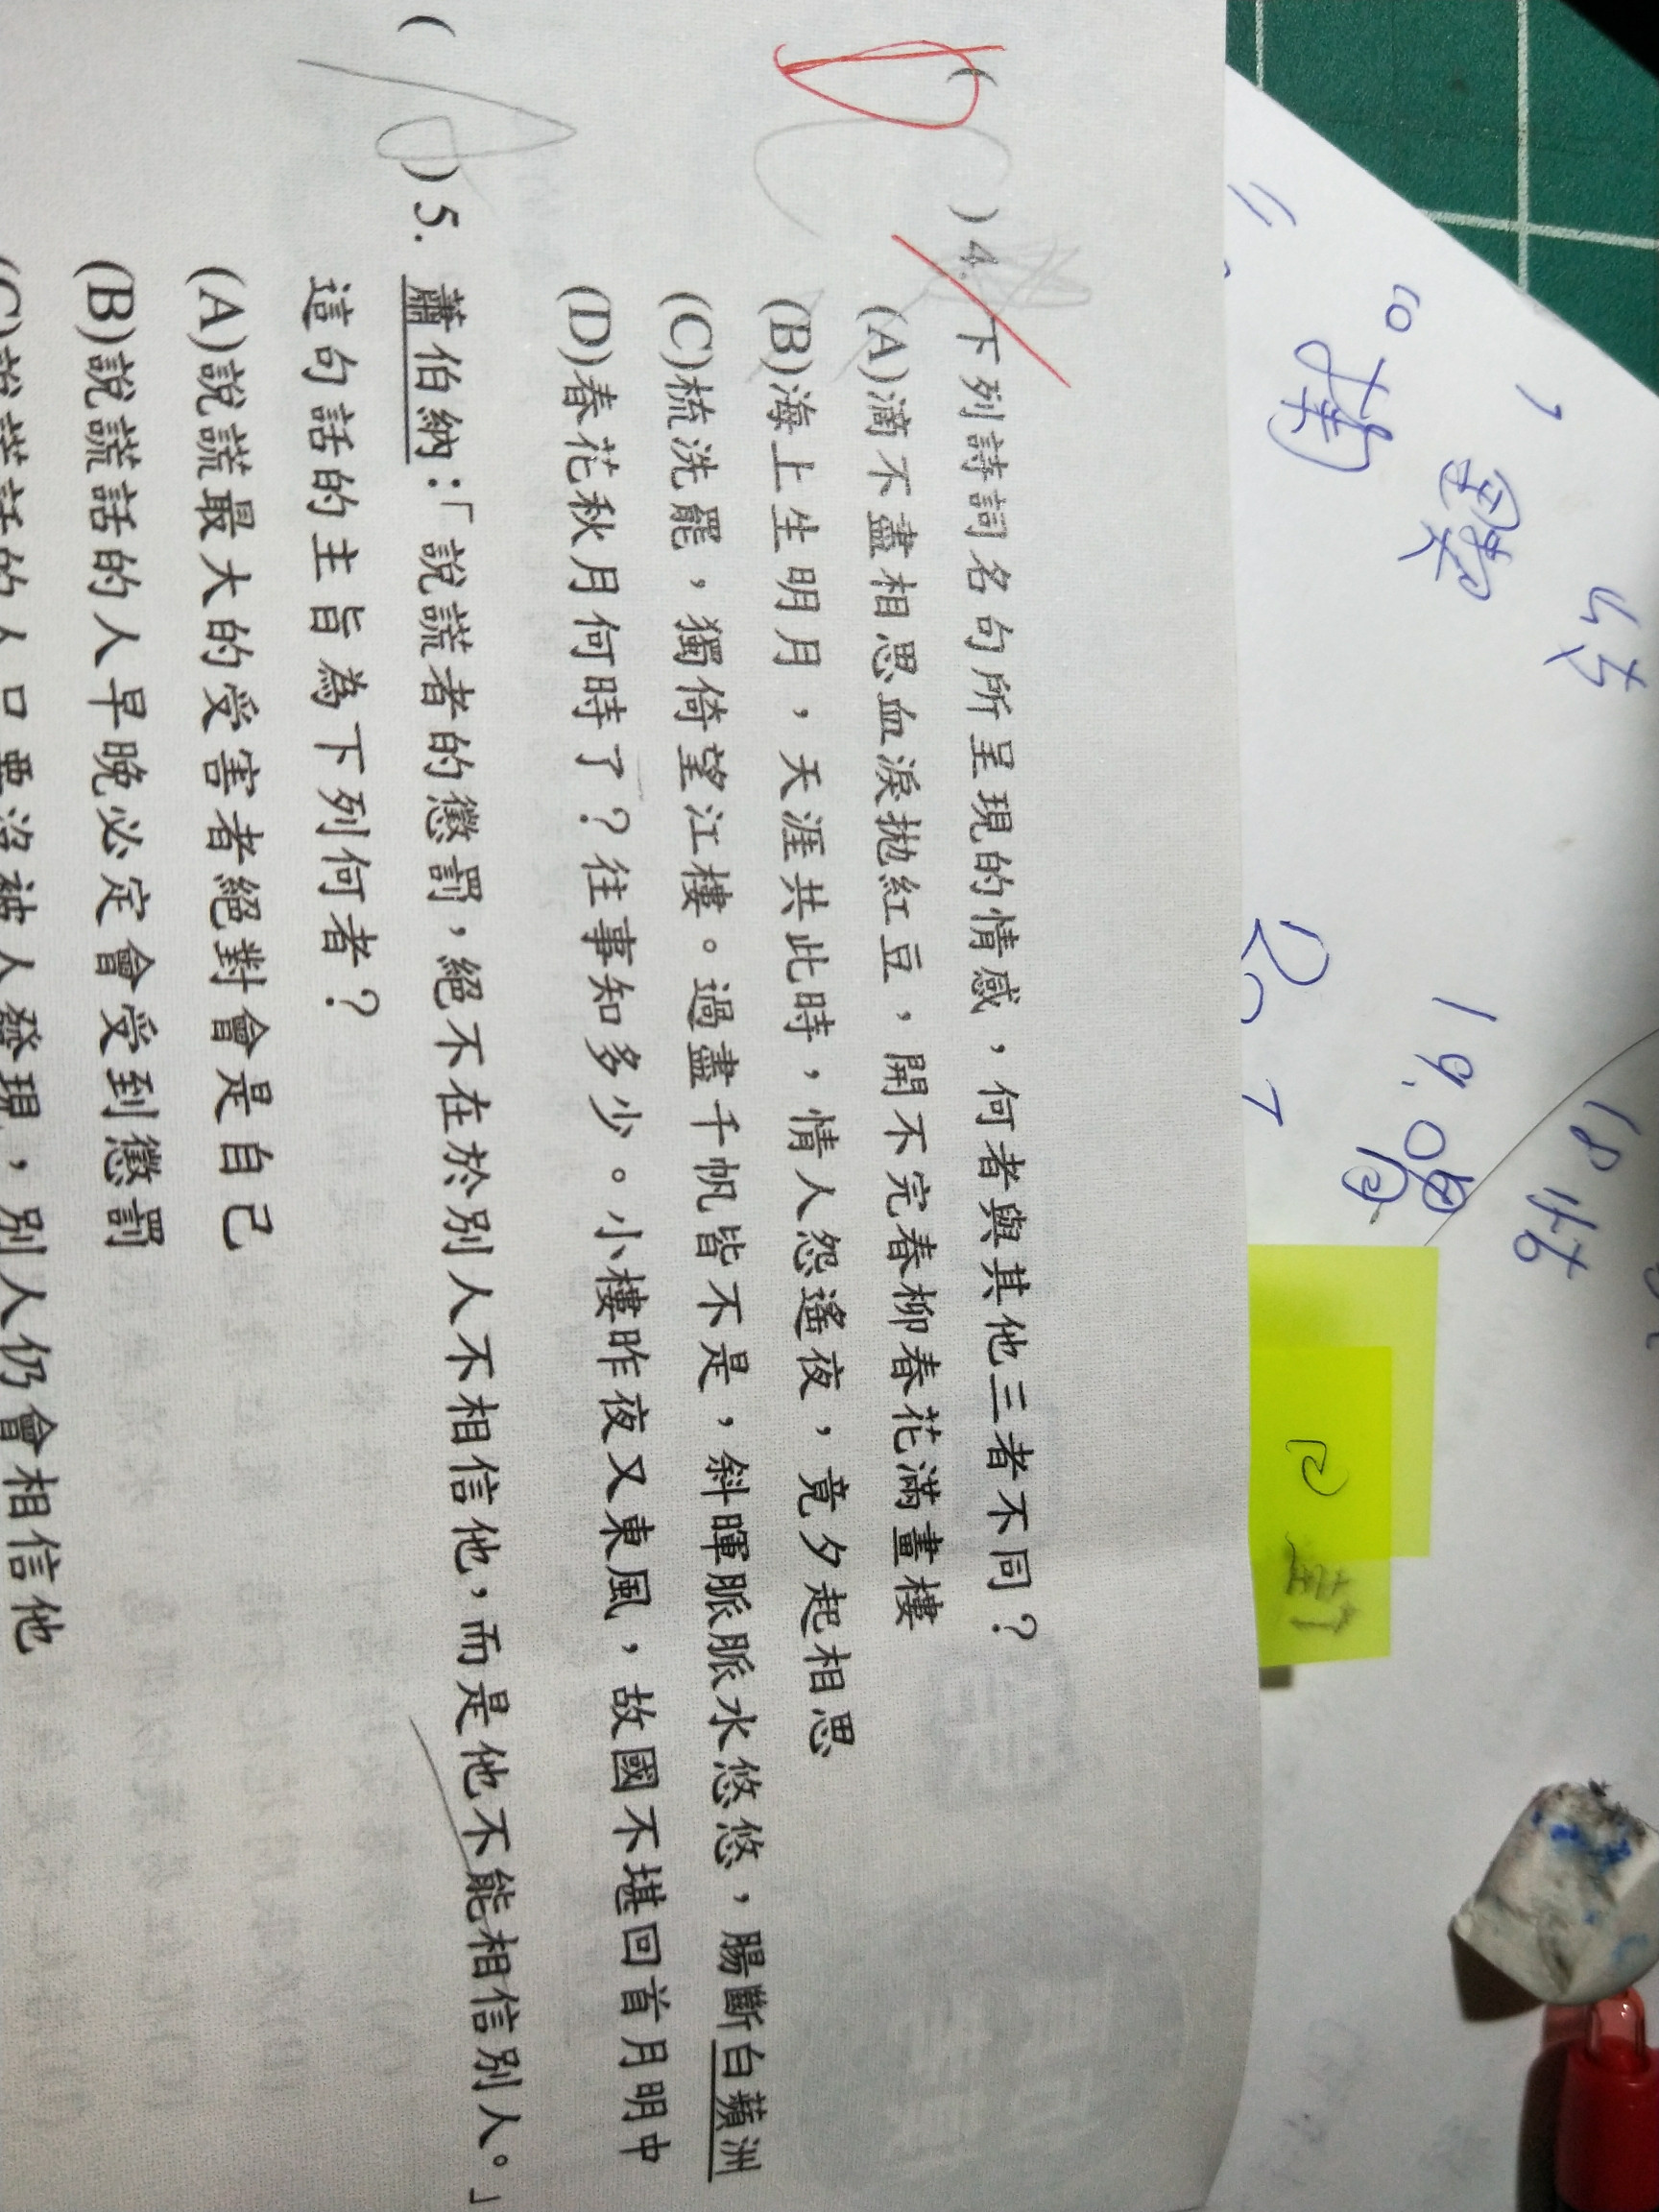 D
( C )4.下列詩詞名句所呈現的情感，何者與其他三者不同？
(A)滴不盡相思血淚拋紅豆，開不完春柳春花滿畫樓
(B)海上生明月，天涯共此時，情人怨遙夜，竟夕起相思
(C)梳洗罷，獨倚望江樓。過盡千帆皆不是，斜暉脈脈水悠悠，腸斷白蘋洲
(D)春花秋月何時了？往事知多少。小樓昨夜又東風，故國不堪回首月明中
( )5.蕭伯納：「說謊者的懲罰，絕不在於別人不相信他，而是他不能相信別人。」
這句話的主旨為下列何者？
(A)說謊最大的受害者絕對會是自己
(B)說謊話的人早晚必定會受到懲罰
(C)說謊話的人只要沒被人發現，別人仍會相信他
19.
18